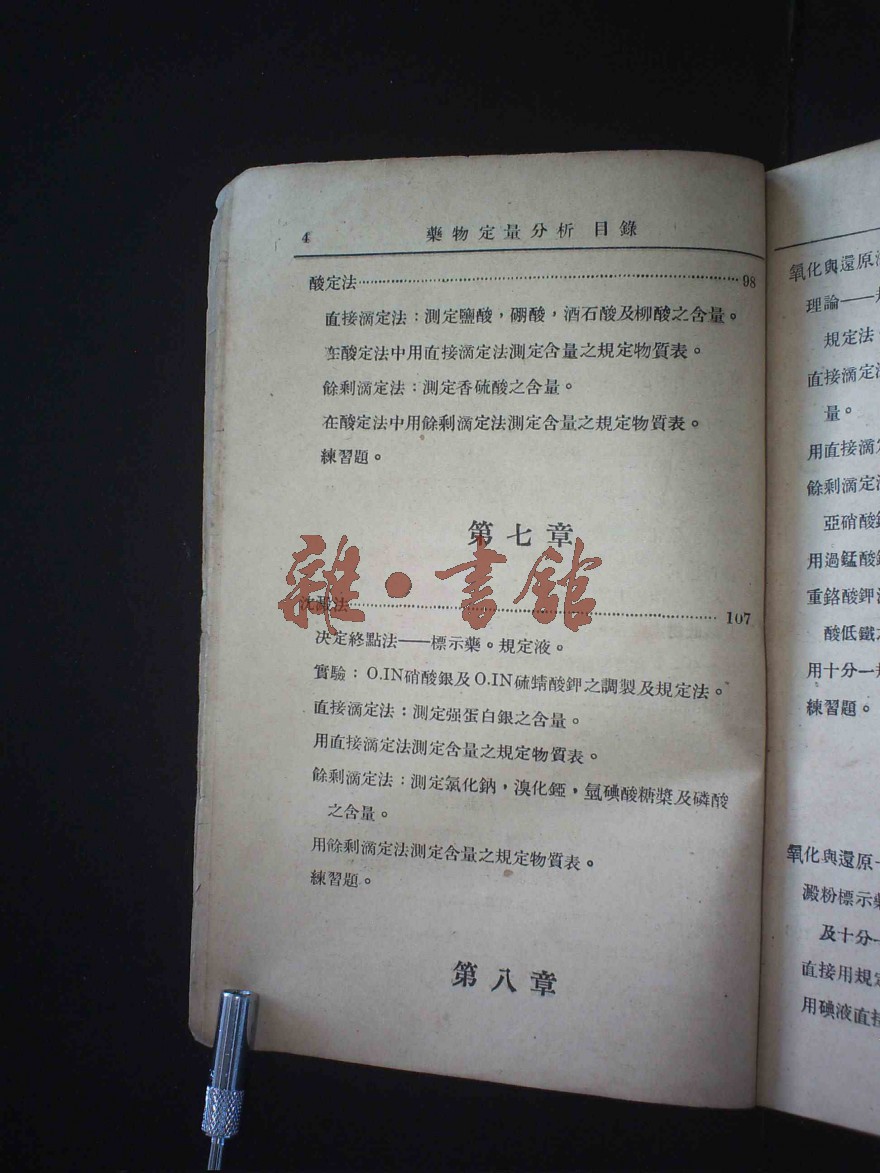 4 藥物定量分析 目錄
酸定法……98
直接滴定法：測定鹽酸，硼酸，酒石酸及柳酸之含量。
在酸定法中用直接滴定法測定含量之規定物質表。
餘剩滴定法：測定香硫酸之含量。
在酸定法中用餘剩滴定法測定含量之規定物質表。
練習題。
第七章
沈澱法……107
决定終點法——標示藥。規定液。
實驗：O.IN硝酸銀及O.IN硫蜻酸鉀之調製及規定法。
直接滴定法：測定强蛋白銀之含量。
用直接滴定法測定含量之規定物質表。
餘剩滴定法：測定氯化鈉，溴化錏，氫碘酸糖漿及磷酸
之含量。
用餘剩滴定法測定含量之規定物質表。
練習題。
第八章
雜·書館
氧化與還原
理論——
規定法
直接滴定
量。
用直接滴
餘剩滴定
亞硝酸
用過錳酸
重鉻酸鉀
酸低鐵
用十分一
練習題。
氧化與還原
澱粉標示
及十分一
直接用規
用碘液直接